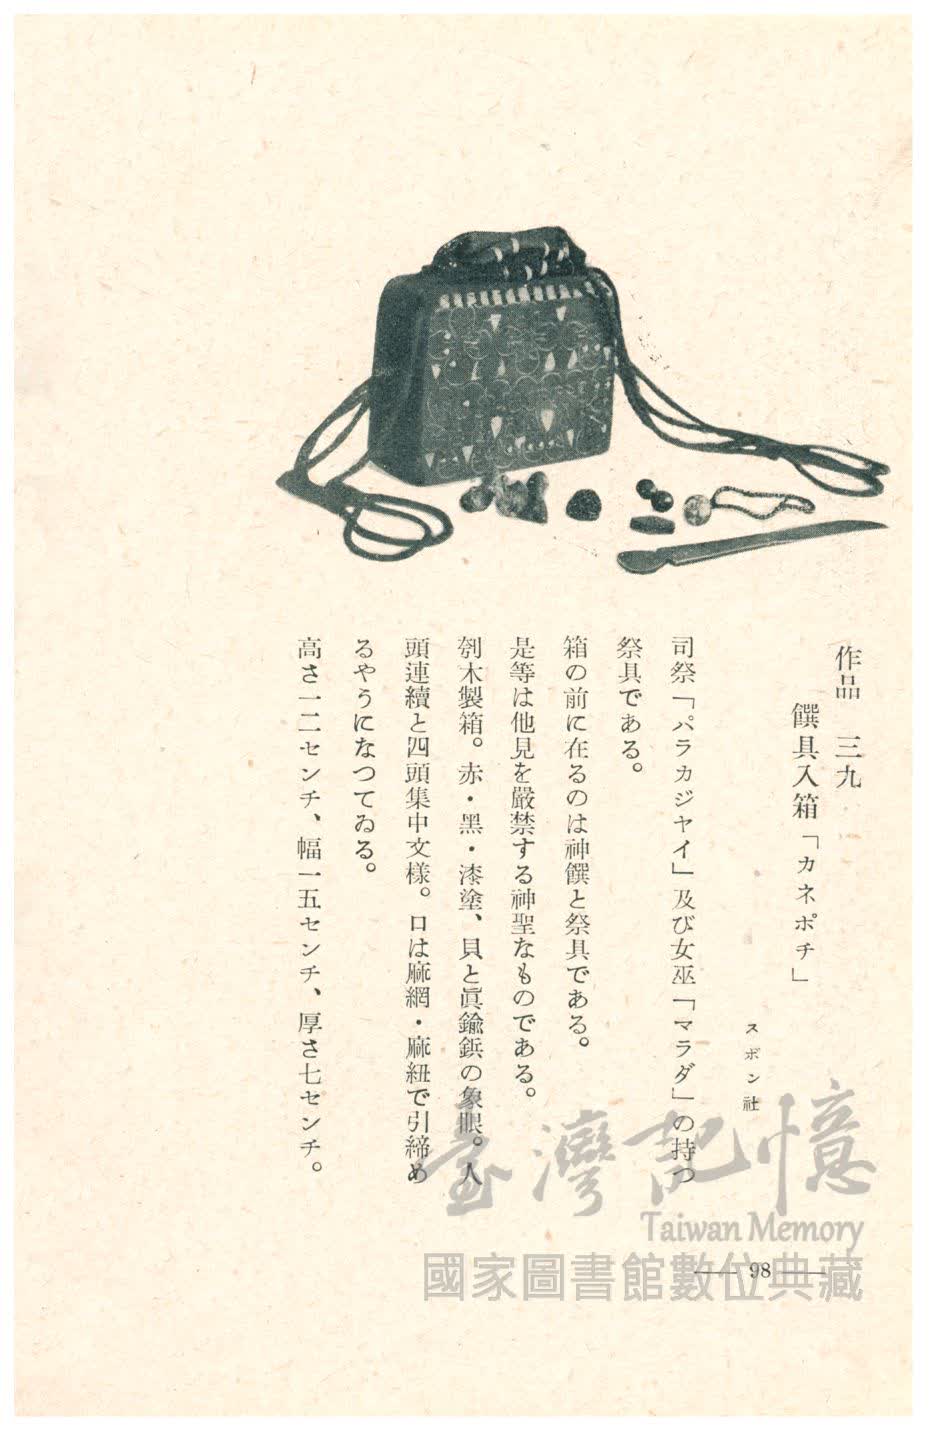 作品　三九
饌具入箱「カネポチ」
スボン社
司祭「パラカジヤイ」及び女巫「マラダ」の持つ
祭具である。
箱の前に在るのは神饌と祭具である。
是等は他見を嚴禁する神聖なものである。
刳木製箱。赤・黑・漆塗、貝と眞鍮鋲の象眼。人
頭連續と四頭集中文樣。口は麻網・麻紐で引締め
るやうになつてゐる。
高さ一二センチ、幅一五センチ、厚さ七センチ。
98
臺灣記憶
Taiwan Memory
國家圖書館數位典藏